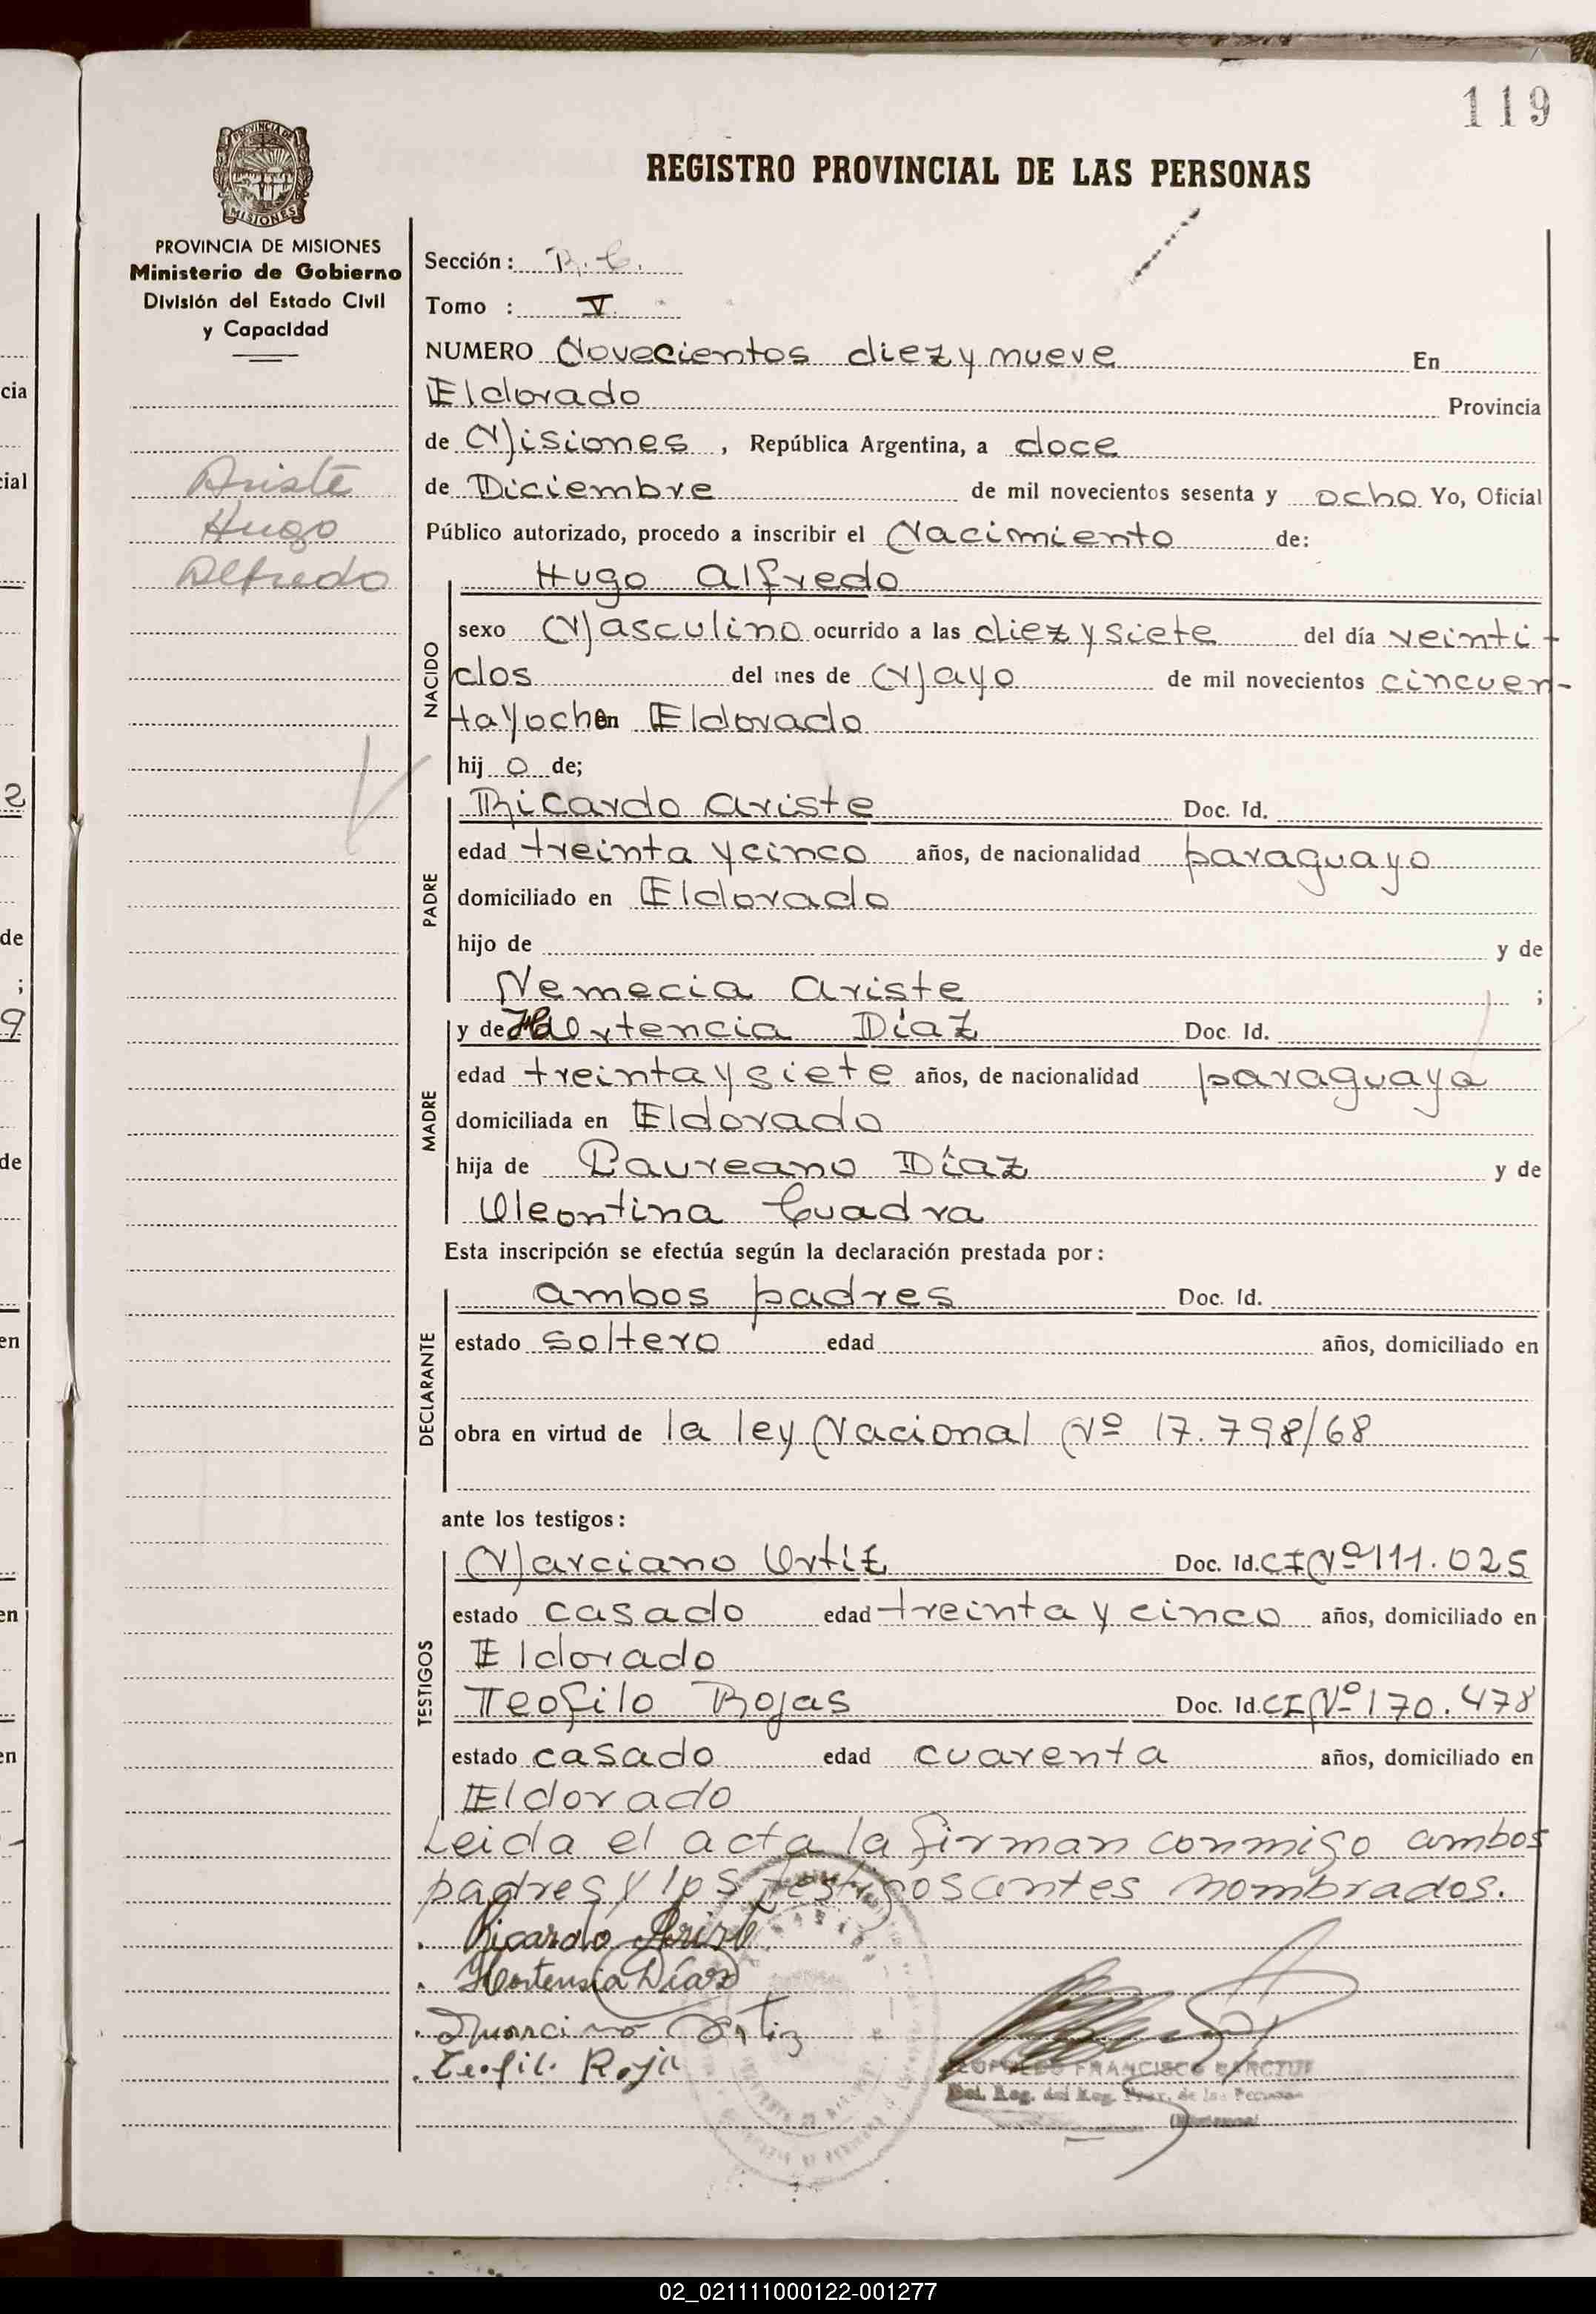 119
PROVINCIA DE
MISIONES
REGISTRO PROVINCIAL DE LAS PERSONAS
PROVINCIA DE MISIONES
Ministerio de Gobierno
División del Estado Civil
y Capacidad
Ariste
Hugo
Alfredo
Sección: R. C.
Tomo : V.
NUMERO Novecientos diez y nueve En
Eldorado Provincia
de Misiones , República Argentina, a doce
de Diciembre de mil novecientos sesenta y ocho Yo, Oficial
Público autorizado, procedo a inscribir el Nacimiento de:
Hugo Alfredo
NACIDO
sexo Masculino ocurrido a las diez y siete del día veinti-
dos del mes de Mayo de mil novecientos cincuen-
ta y ocho en Eldorado
hij o de;
PADRE
Ricardo Ariste Doc. Id.
edad treinta y cinco años, de nacionalidad paraguayo
domiciliado en Eldorado
hijo de y de
Nemecia Ariste ;
MADRE
y de Hortencia Díaz Doc. Id.
edad treinta y siete años, de nacionalidad paraguaya
domiciliada en Eldorado
hija de Laureano Díaz y de
Oleontina Cuadra
Esta inscripción se efectúa según la declaración prestada por:
DECLARANTE
ambos padres Doc. Id.
estado soltero edad años, domiciliado en
obra en virtud de la ley Nacional Nº 17.798/68
ante los testigos:
TESTIGOS
Marciano Ortíz Doc. Id. CI Nº 111.025
estado casado edad treinta y cinco años, domiciliado en
Eldorado
Teofilo Rojas Doc. Id. CI Nº 170.478
estado casado edad cuarenta años, domiciliado en
Eldorado
Leida el acta la firman conmigo ambos
padres y los testigos antes nombrados.
Ricardo Ariste
Hortensia Díaz
Marciano Ortiz
Teofilo Roja
FRANCISCO
02_021111000122-001277